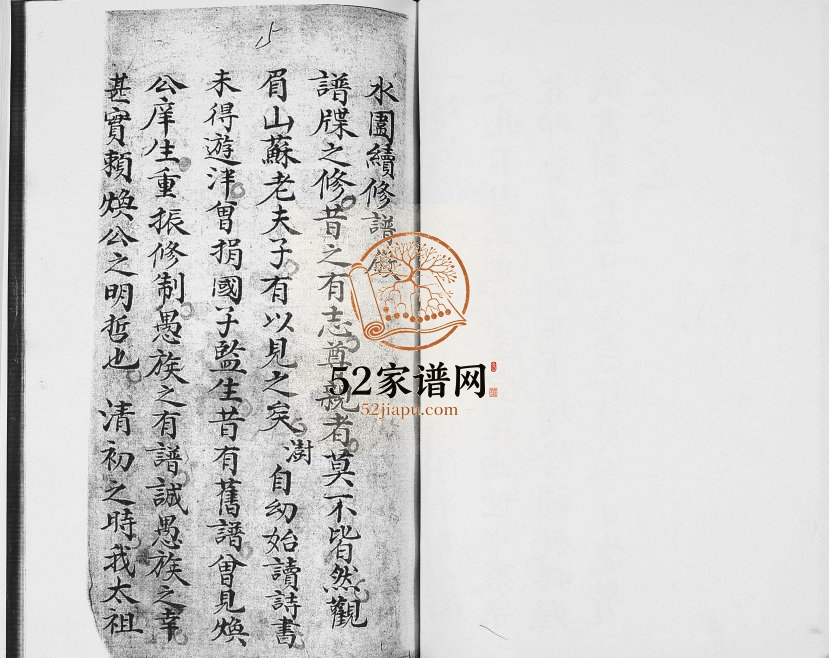 水園續修譜
譜牒之修昔之有志尊親者莫不皆然觀
眉山蘇老夫子有以見之矣澍自幼始讀詩書
未得遊泮曾捐國子監生昔有舊譜曾見煥
公庠生重振修制愚族之有譜誠愚族之幸
甚實賴煥公之明哲也 清初之時我太祖
52家谱网
52jiapu.com